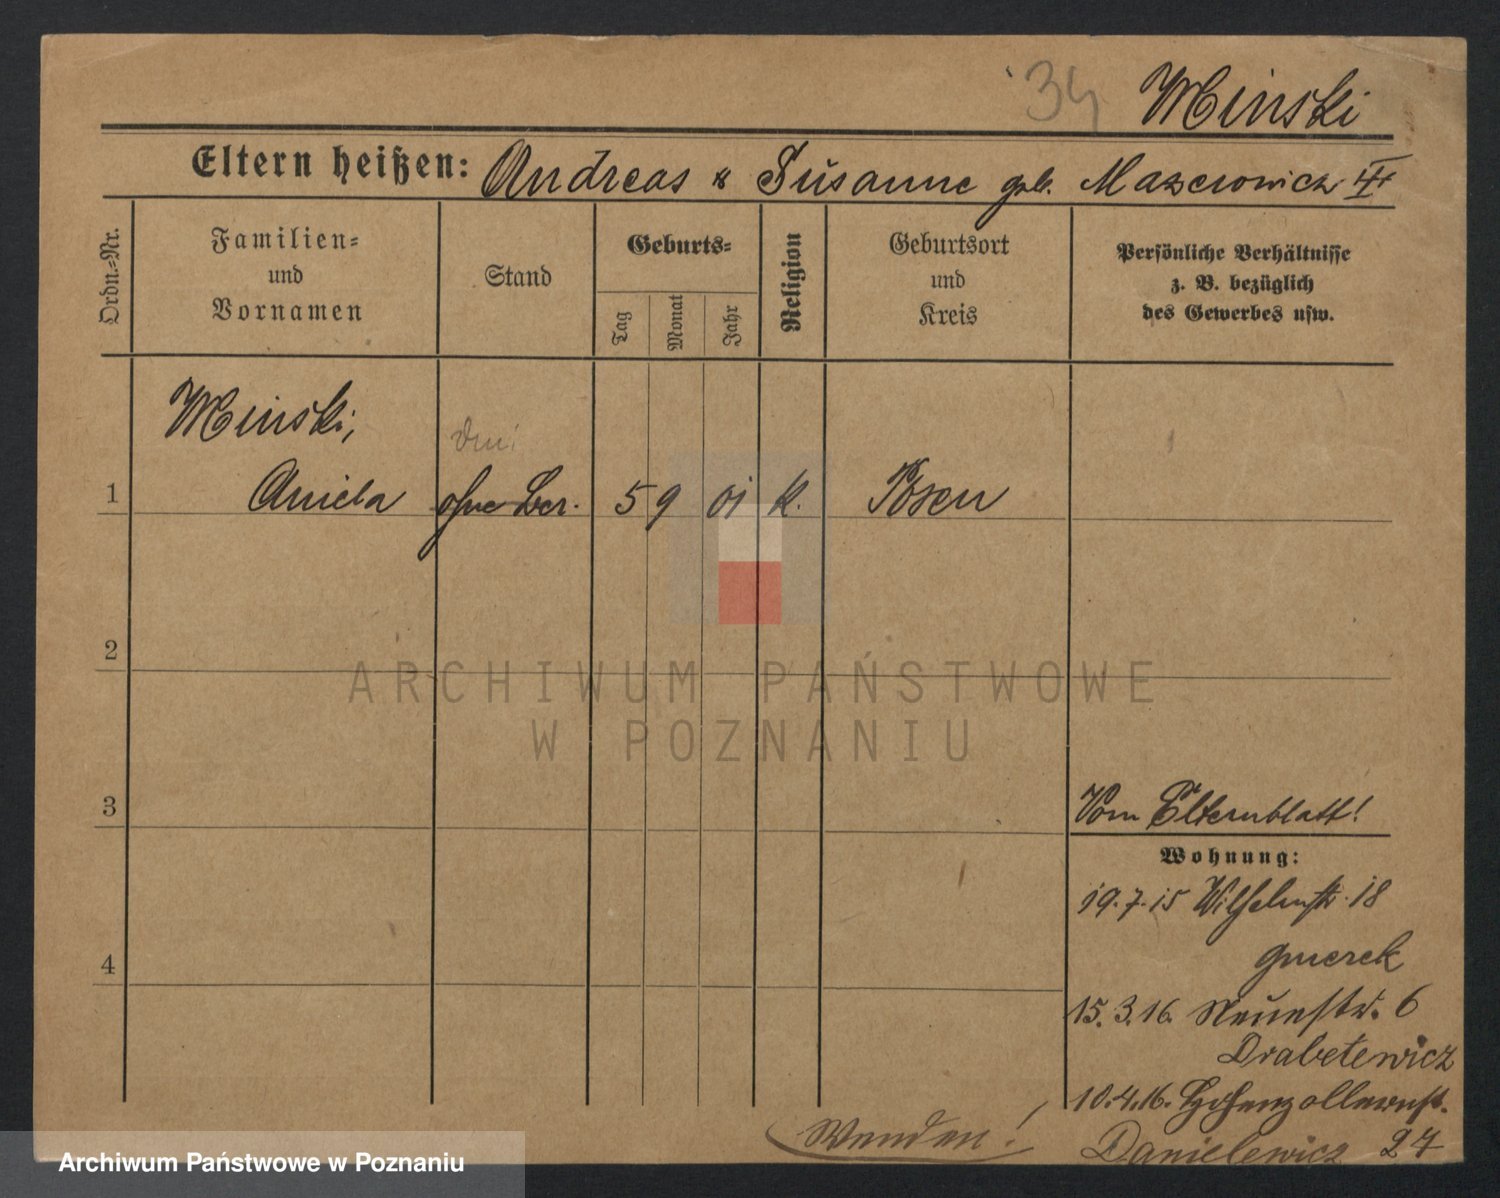 34 Minski
Eltern heißen: Andreas & Susanne geb. Mazerowicz
Ordn.=Nr.
Familien=
und
Vornamen
Stand
Geburts=
Tag
Monat
Jahr
Religion
Geburtsort
und
Kreis
Persönliche Verhältnisse
z. B. bezüglich
des Gewerbes usw.
Minski,
1 Aniela ohne Ber. 5 9 01 k. Posen
2
3
4
Vom Elternblatt!
Wohnung:
19.7.15 Wilhelmstr. 18
Gmerek
15.3.16. Neuestr. 6
Drabetewicz
10.4.16. Hohenzollernst.
Danielewicz 27
Wenden!
ARCHIWUM PAŃSTWOWE
W POZNANIU
Archiwum Państwowe w Poznaniu